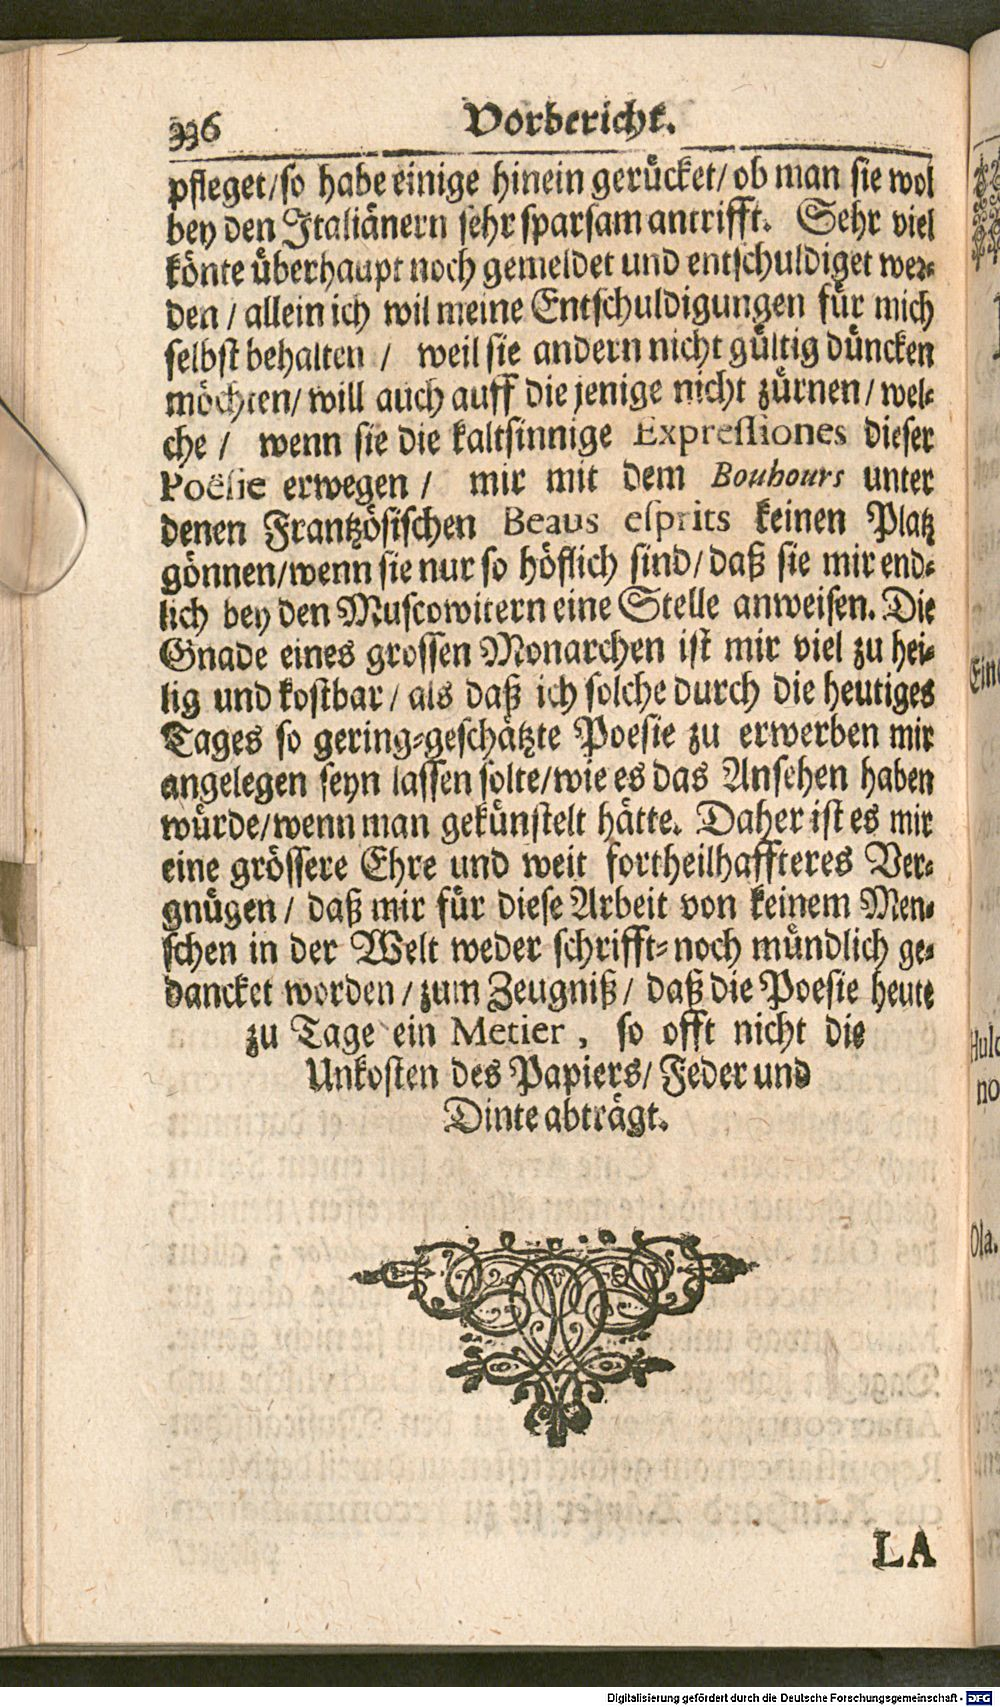 336
Vorbericht.
pfleget/so habe einige hinein gerücket/ ob man sie wol
bey den Italiänern sehr sparsam antrifft. Sehr viel
könte überhaupt noch gemeldet und entschuldiget wer-
den / allein ich wil meine Entschuldigungen für mich
selbst behalten / weil sie andern nicht gültig düncken
möchten/ will auch auff die jenige nicht zürnen/ wel-
che / wenn sie die kaltsinnige Expressiones dieser
Poësie erwegen / mir mit dem Bouhours unter
denen Frantzösischen Beaus esprits keinen Platz
gönnen/wenn sie nur so höflich sind/ daß sie mir end-
lich bey den Muscowitern eine Stelle anweisen. Die
Gnade eines grossen Monarchen ist mir viel zu hei-
lig und kostbar / als daß ich solche durch die heutiges
Tages so gering-geschätzte Poesie zu erwerben mir
angelegen seyn lassen solte/wie es das Ansehen haben
würde/wenn man gekünstelt hätte. Daher ist es mir
eine grössere Ehre und weit fortheilhaffteres Ver-
gnügen / daß mir für diese Arbeit von keinem Men-
schen in der Welt weder schrifft- noch mündlich ge-
dancket worden / zum Zeugniß / daß die Poesie heute
zu Tage ein Metier, so offt nicht die
Unkosten des Papiers/ Feder und
Dinte abträgt.
LA
Digitalisierung gefördert durch die Deutsche Forschungsgemeinschaft - DFG